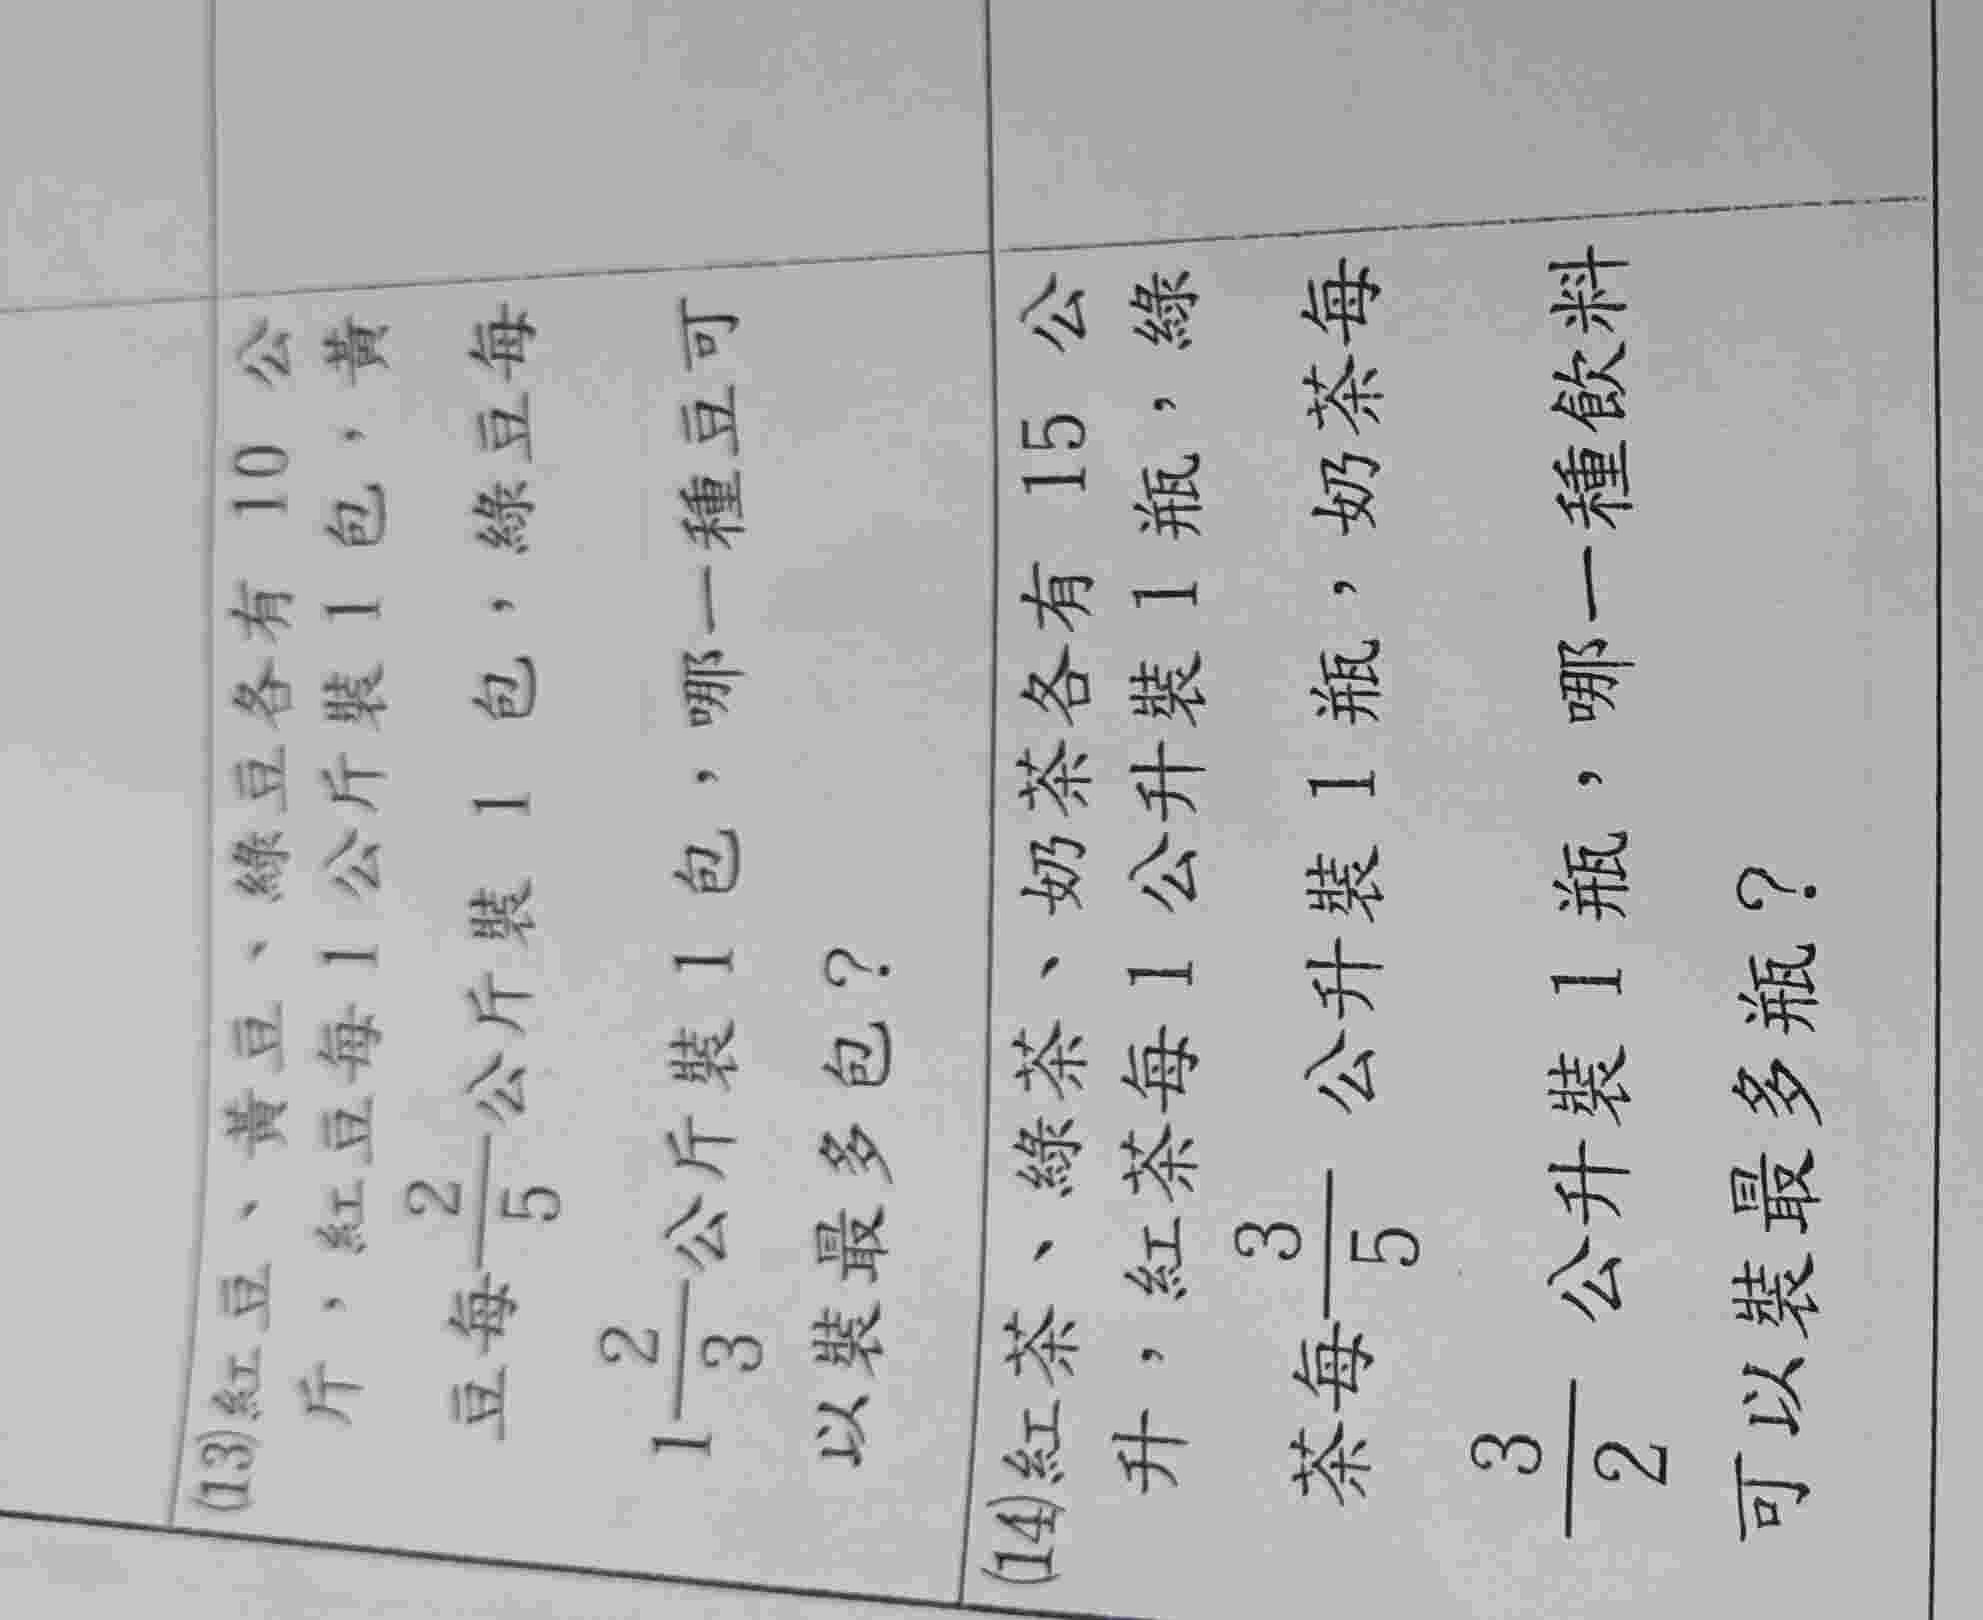 (13)紅豆、黃豆、綠豆各有 10 公
斤，紅豆每 1 公斤裝 1 包，黃
豆每 2/5 公斤裝 1 包，綠豆每
1 2/3 公斤裝 1 包，哪一種豆可
以裝最多包？
(14)紅茶、綠茶、奶茶各有 15 公
升，紅茶每 1 公升裝 1 瓶，綠
茶每 3/5 公升裝 1 瓶，奶茶每
3/2 公升裝 1 瓶，哪一種飲料
可以裝最多瓶？